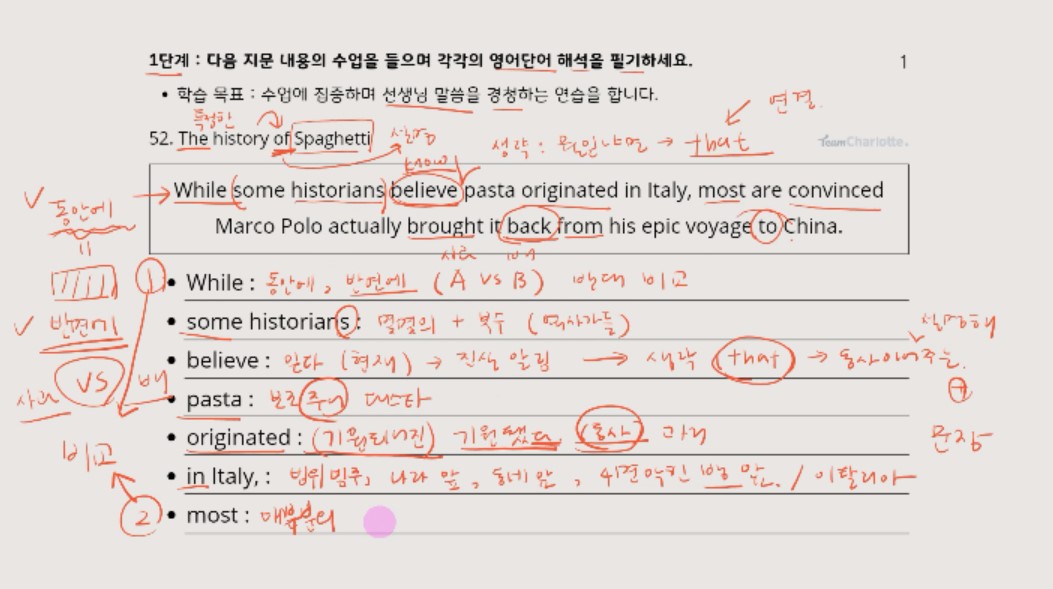 1단계 : 다음 지문 내용의 수업을 들으며 각각의 영어단어 해석을 필기하세요. 1
• 학습 목표 : 수업에 집중하며 선생님 말씀을 경청하는 연습을 합니다.
연결.
특정한
52. The history of Spaghetti 설명
생략 : 뭔일나면 → that
TeamCharlotte.
While some historians believe pasta originated in Italy, most are convinced
Marco Polo actually brought it back from his epic voyage to China.
✓ 동안에
=
✓ 반면에
사과 VS 배
비교
① 
②
사과 배
• While : 동안에, 반면에 (A vs B) 반대 비교
• some historians : 몇몇의 + 복수 (역사가들)
• believe : 믿다 (현재) → 진실 알림 → 생략 that → 동사 이어주는.
설명해
+
문장
• pasta :
• originated : (기원되어진) 기원됐다 (동사) 과거
• in Italy, : 범위 범주, 나라 앞, 동네 앞, 방 앞. / 이탈리아
• most : 대부분의